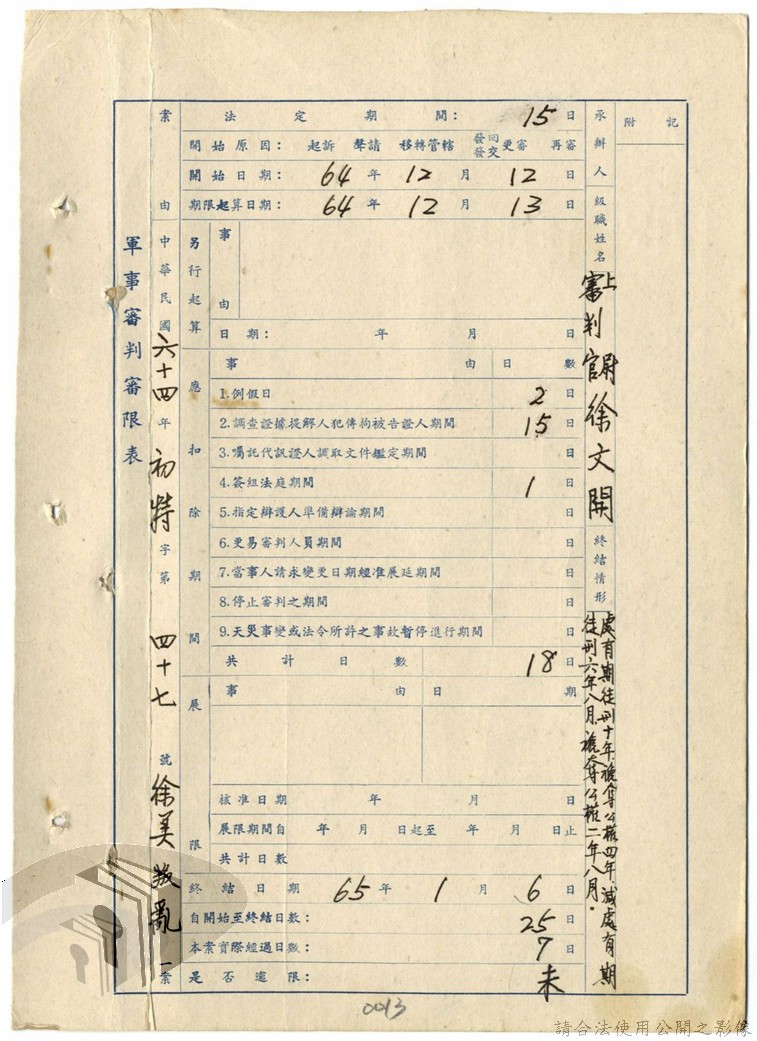 軍事審判審限表
案由 中華民國六十四年初特字第四十七號徐美叛亂一案
法定期間：15日
開始原因：起訴 聲請 移轉管轄 發回發交更審 再審
開始日期：64年12月12日
期限起算日期：64年12月13日
另行起算 事由
日期：年月日
應扣除期間 事由 日數
1.例假日 2日
2.調查證據提解人犯傳拘被告證人期間 15日
3.囑託代訊證人調取文件鑑定期間 日
4.簽組法庭期間 1日
5.指定辯護人準備辯論期間 日
6.更易審判人員期間 日
7.當事人請求變更日期經准展延期間 日
8.停止審判之期間 日
9.天災事變或法令所許之事故暫停進行期間 日
共計日數 18日
展限 事由 日期
核准日期 年月日
展限期間自 年月日起至年月日止
共計日數
終結日期 65年1月6日
自開始至終結日數：25日
本案實際經過日數：7日
是否逾限：未
承辦人級職姓名 上尉審判官徐文開
終結情形 處有期徒刑十年褫奪公權四年，減處有期
徒刑六年八月，褫奪公權二年八月。
附記
0013
請合法使用公開之影像